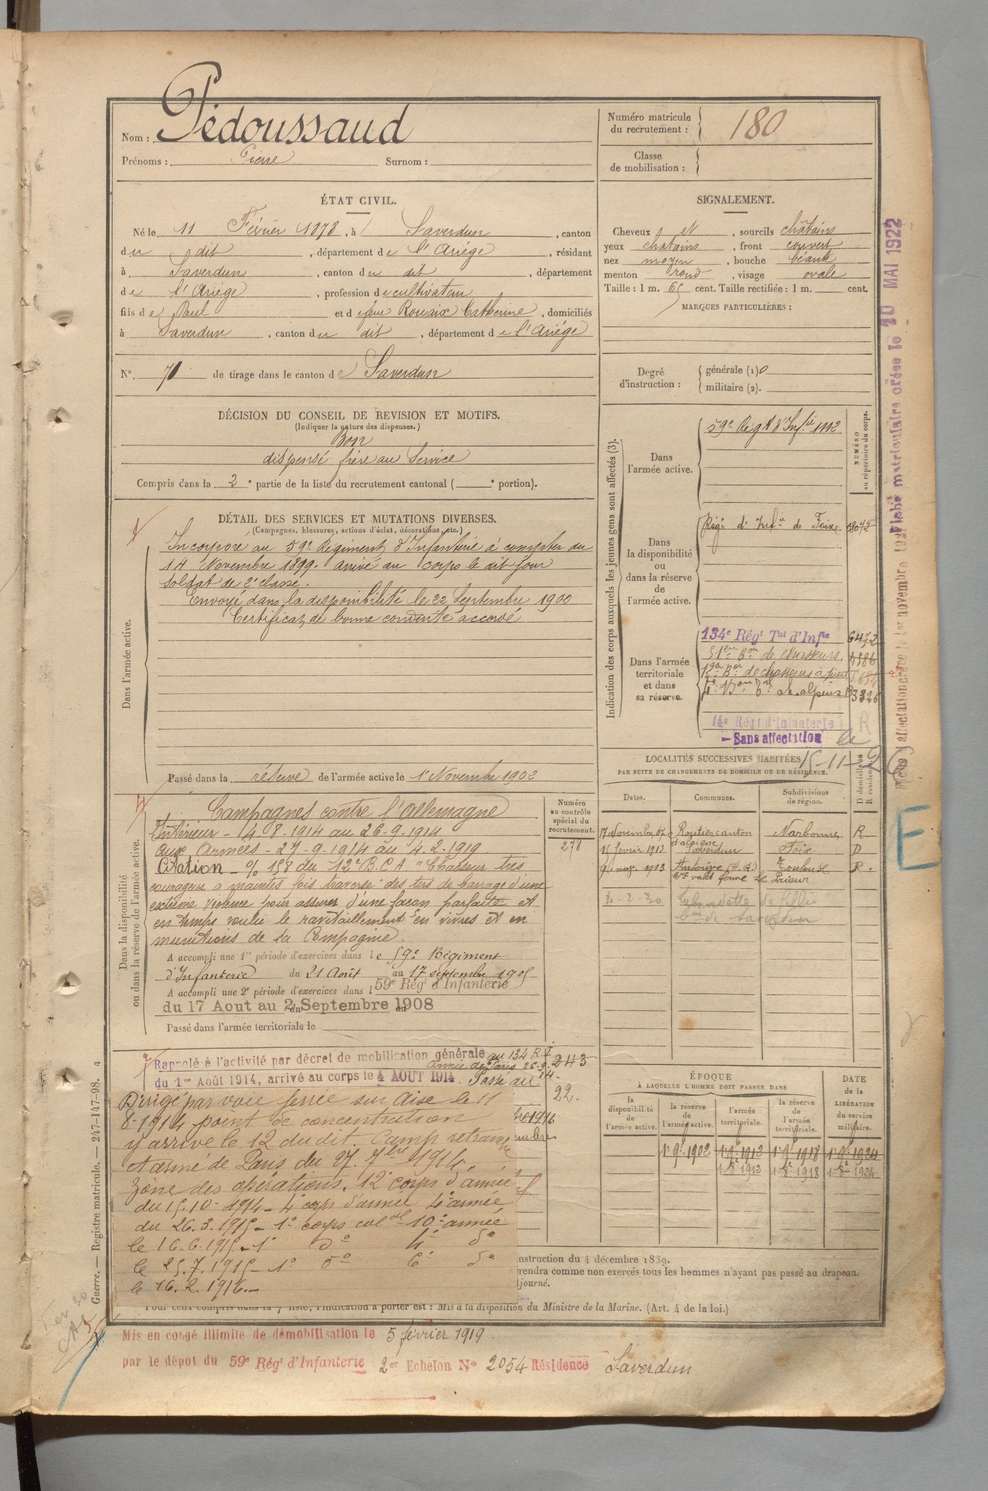 Nom : Pédoussaud
Prénoms : Pierre Surnom :
Numéro matricule du recrutement : 180
Classe de mobilisation :
ÉTAT CIVIL.
Né le 11 Février 1878, à Saverdun, canton
du dit, département de l'Ariège, résidant
à Saverdun, canton du dit, département
de l'Ariège, profession de cultivateur
fils de Paul et de feue Rouaix Catherine, domiciliés
à Saverdun, canton du dit, département de l'Ariège
N° 71 de tirage dans le canton de Saverdun
SIGNALEMENT.
Cheveux et, sourcils châtains
yeux chatains, front couvert
nez moyen, bouche béante
menton rond, visage ovale
Taille : 1 m. 65 cent. Taille rectifiée : 1 m. cent.
MARQUES PARTICULIÈRES :
Degré d'instruction : générale (1) 0
militaire (2).
DÉCISION DU CONSEIL DE REVISION ET MOTIFS.
(Indiquer la nature des dispenses.)
Bon
dispensé frère au Service
Compris dans la 2e partie de la liste du recrutement cantonal ( e portion).
DÉTAIL DES SERVICES ET MUTATIONS DIVERSES.
(Campagnes, blessures, actions d'éclat, décorations, etc.)
Dans l'armée active.
Incorporé au 59e Régiment d'Infanterie à compter du
14 Novembre 1899. arrivé au corps le dit jour
soldat de 2e classe.
Envoyé dans la disponibilité le 22 Septembre 1900
Certificat de bonne conduite accordé
Passé dans la réserve de l'armée active le 1 Novembre 1902
Dans la disponibilité ou dans la réserve de l'armée active.
Campagnes contre l'Allemagne
Intérieur - 4-8-1914 au 26-9-1914
Aux Armées - 27-9-1914 au 4-2-1919
Citation - 158 du 12e B.C.A "Chasseur très
courageux a maintes fois traversé des tirs de barrage d'une
extrême violence pour assurer d'une façon parfaite et
en temps voulu le ravitaillement en vivres et en
munitions de sa Compagnie.
A accompli une 1re période d'exercices dans le 59e Régiment
d'Infanterie du 21 Août au 17 septembre 1905
A accompli une 2e période d'exercices dans l 59e Régt d'Infanterie
du 17 Aout au 2 Septembre 1908
Passé dans l'armée territoriale le
Numéro au contrôle spécial du recrutement.
278
Rappelé à l'activité par décret de mobilisation générale
du 1er Août 1914, arrivé au corps le 4 AOUT 1914. Passé au
243
22.
Dirigé par voie ferrée sur Oise le 11
8-1914 point de concentration
y arrive le 12 du dit. Camp retranché
et armée de Paris du 27. 7bre 1914.
Zône des opérations. 12e corps d'armée
du 15-10-1914 - 4e corps d'armée 4e armée
du 26.3.1915 - 1e corps col al 10e armée
le 16.6.1915 - 1e
le 25.7.1915 - 1e
le 16.2.1916.
Indication des corps auxquels les jeunes gens sont affectés (3).
Dans l'armée active.
59e Régt d'Infie 1112
NUMÉRO au répertoire du corps.
Dans la disponibilité ou dans la réserve de l'armée active.
Régt d'Infie de Foix
Dans l'armée territoriale et dans sa réserve.
134e Régt Tal d'Infie 6472
51e Bon de chasseurs
12e Bon de chasseurs alpins
14e Régt d'Infanterie
Sans affectation le
15-11-26
R
LOCALITÉS SUCCESSIVES HABITÉES
PAR SUITE DE CHANGEMENTS DE DOMICILE OU DE RÉSIDENCE.
Dates. Communes. Subdivisions de région. D domicile R résidence
Narbonne R
Saverdun Foix D
Auterive (H. G.) Toulouse R.
ÉPOQUE
À LAQUELLE L'HOMME DOIT PASSER DANS
la disponibilité de l'armée active. la réserve de l'armée active. l'armée territoriale. la réserve de l'armée territoriale. DATE de la LIBÉRATION du service militaire.
1 9e 1902 1 9e 1912 1 9e 1918 1 9e 1924
nstruction du 4 décembre 1889.
rendra comme non exercés tous les hommes n'ayant pas passé au drapeau.
journé.
Pour ceux compris dans la 7e liste, l'indication à porter est : Mis à la disposition du Ministre de la Marine. (Art. 4 de la loi.)
Mis en congé illimité de démobilisation le 5 février 1919
par le dépôt du 59e Régt d'Infanterie 2er Echelon N° 2054 Résidence Saverdun
Guerre. — Registre matricule. — 247-147-98.
Fiche matriculaire créée le 10 MAI 1922
E